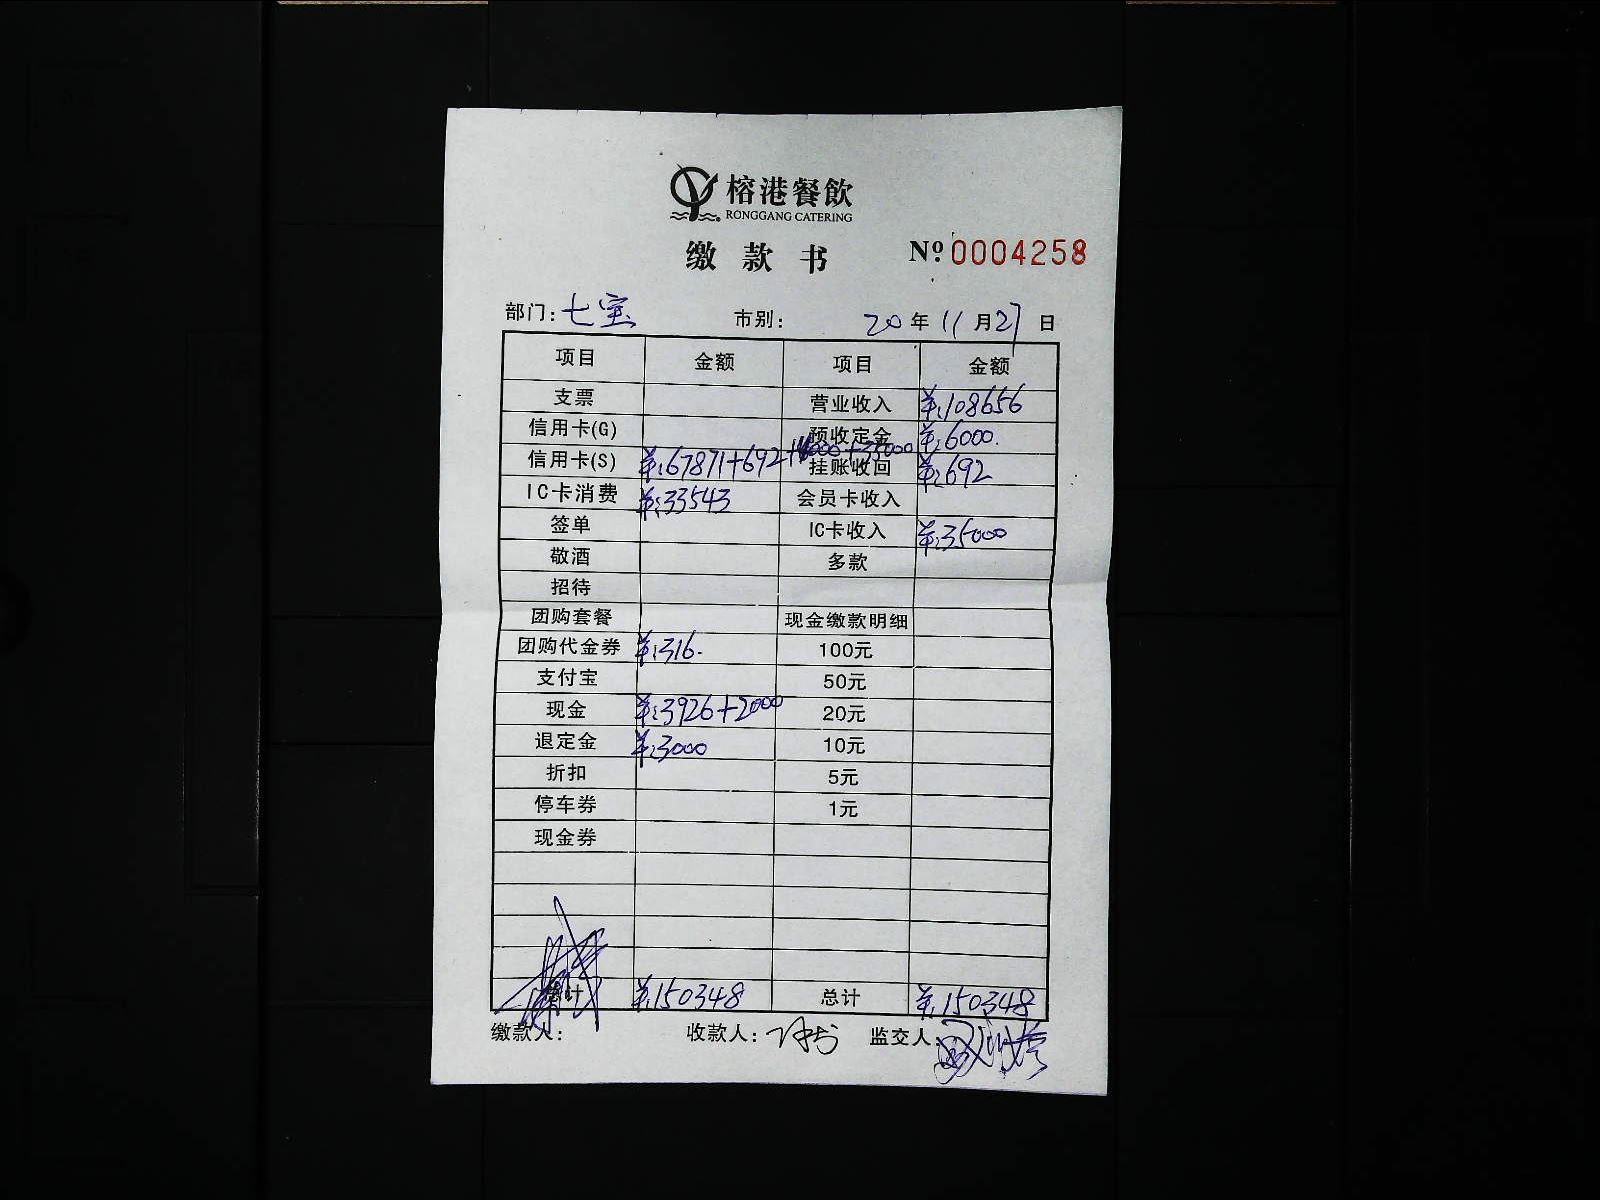 榕港餐飲
RONGGANG CATERING
缴款书 Nº:0004258
部门:七宝 市别: 20年11月27日
项目 金额 项目 金额
支票 营业收入 ¥:108656
信用卡(G) 预收定金 ¥:6000.
信用卡(S) ¥:67871+692+4000+35000 挂账收回 ¥:692
IC卡消费 ¥:33543 会员卡收入
签单 IC卡收入 ¥:35000
敬酒 多款
招待
团购套餐 现金缴款明细
团购代金券 ¥:316. 100元
支付宝 50元
现金 ¥:3926+2000 20元
退定金 ¥:3000 10元
折扣 5元
停车券 1元
现金券
总计 ¥:150348 总计 ¥:150348
缴款人: 收款人: 监交人: